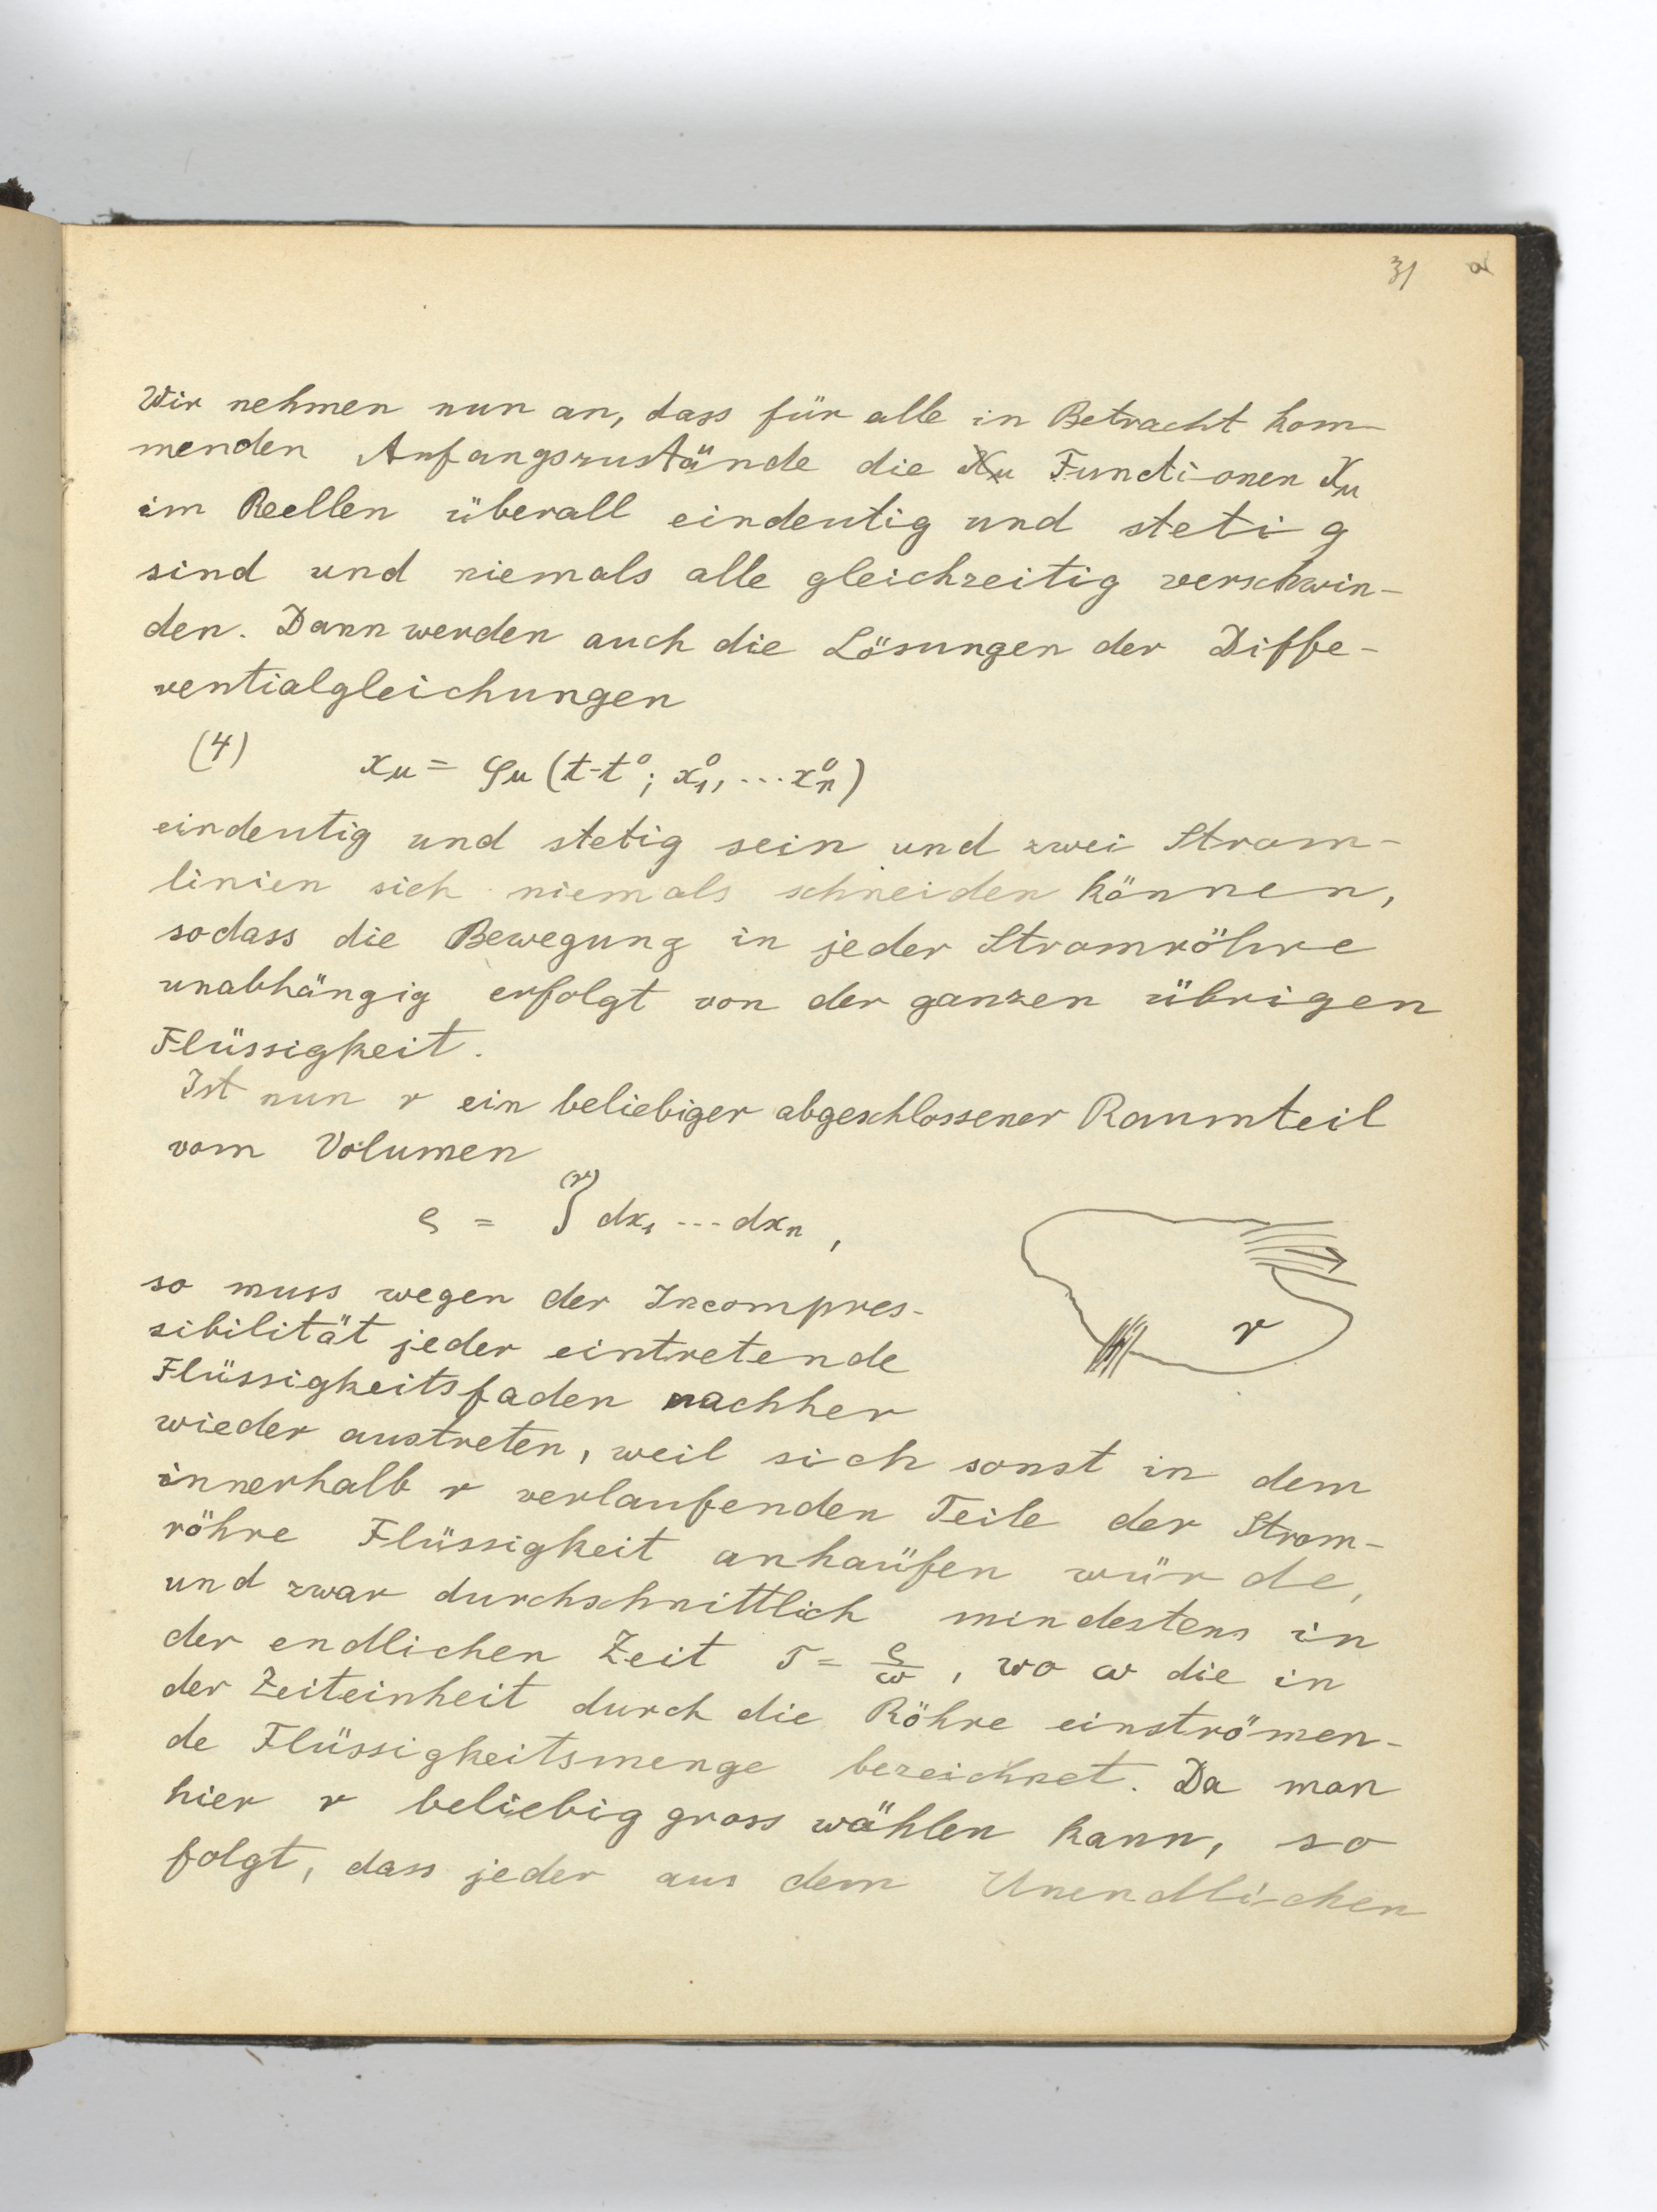 31 a
Wir nehmen nun an, dass für alle in Betracht kom-
menden Anfangszustände die Xμ Functionen Xμ
im Reellen überall eindeutig und stetig
sind und niemals alle gleichzeitig verschwin-
den. Dann werden auch die Lösungen der Diffe-
rentialgleichungen
(4) xμ = φμ (t-t⁰; x₁⁰, ... xₙ⁰)
eindeutig und stetig sein und zwei Strom-
linien sich niemals schneiden können,
sodass die Bewegung in jeder Stromröhre
unabhängig erfolgt von der ganzen übrigen
Flüssigkeit.
Ist nun r ein beliebiger abgeschlossener Raumteil
vom Volumen
ς = ∫⁽ʳ⁾ dx₁ --- dxₙ,
so muss wegen der Incompres-
sibilität jeder eintretende
Flüssigkeitsfaden nachher
wieder austreten, weil sich sonst in dem
innerhalb r verlaufenden Teile der Strom-
röhre Flüssigkeit anhaüfen würde,
und zwar durchschnittlich mindestens in
der endlichen Zeit T = ς/ω, wo ω die in
der Zeiteinheit durch die Röhre einströmen-
de Flüssigkeitsmenge bezeichnet. Da man
hier r beliebig gross wählen kann, so
folgt, dass jeder aus dem Unendlichen
r